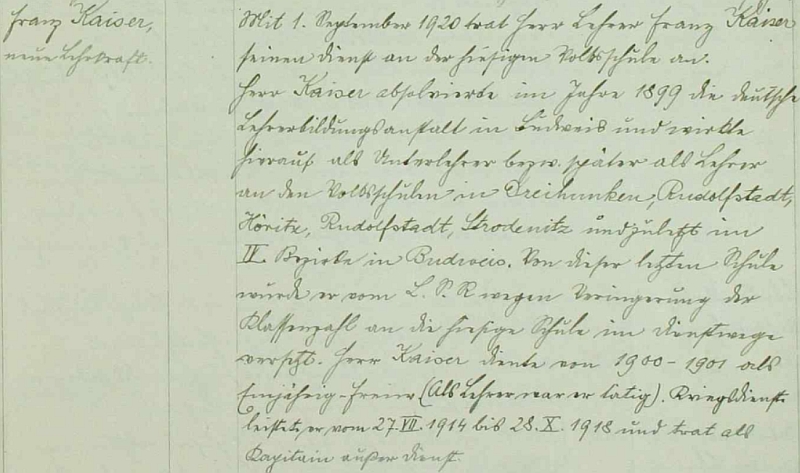 Franz Kaiser,
neue Lehrkraft.
Mit 1. September 1920 trat Herr Lehrer Franz Kaiser
seinen Dienst an der hiesigen Volksschule an.
Herr Kaiser absolvierte im Jahre 1899 die deutsche
Lehrerbildungsanstalt in Budweis und wirkte
hierauf als Unterlehrer bezw. später als Lehrer
an den Volksschulen in Dreihunken, Rudolfstadt,
Höritz, Rudolfstadt, Strodenitz und zuletzt im
IV. Bezirke in Budweis. Von dieser letzten Schule
wurde er vom L. S. R wegen Veringerung der
Klassenzahl an die hiesige Schule im Dienstwege
versetzt. Herr Kaiser diente von 1900 - 1901 als
Einjährig-Freiw (Als Lehrer war er tätig). Kriegsdienst
leistete er vom 27. VII. 1914 bis 28. X. 1918 und trat als
Kapitain außer Dienst.